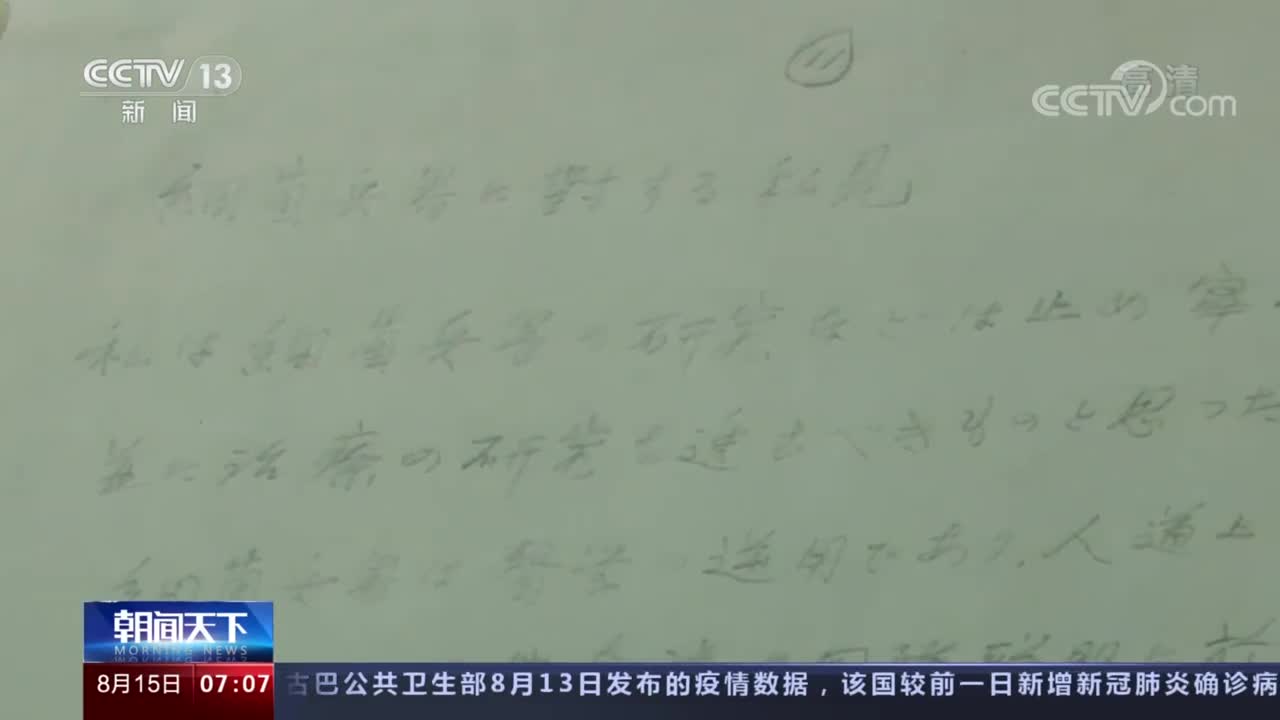 CCTV 13
新闻
高清
CCTV com
細菌兵器に對する私見
私は細菌兵器の研究などは止め 寧
並に治療の研究を進むべきものと思った
細菌兵器は醫学の逆用であり、人道上
朝闻天下
MORNING NEWS
8月15日 07:07
古巴公共卫生部8月13日发布的疫情数据，该国较前一日新增新冠肺炎确诊病